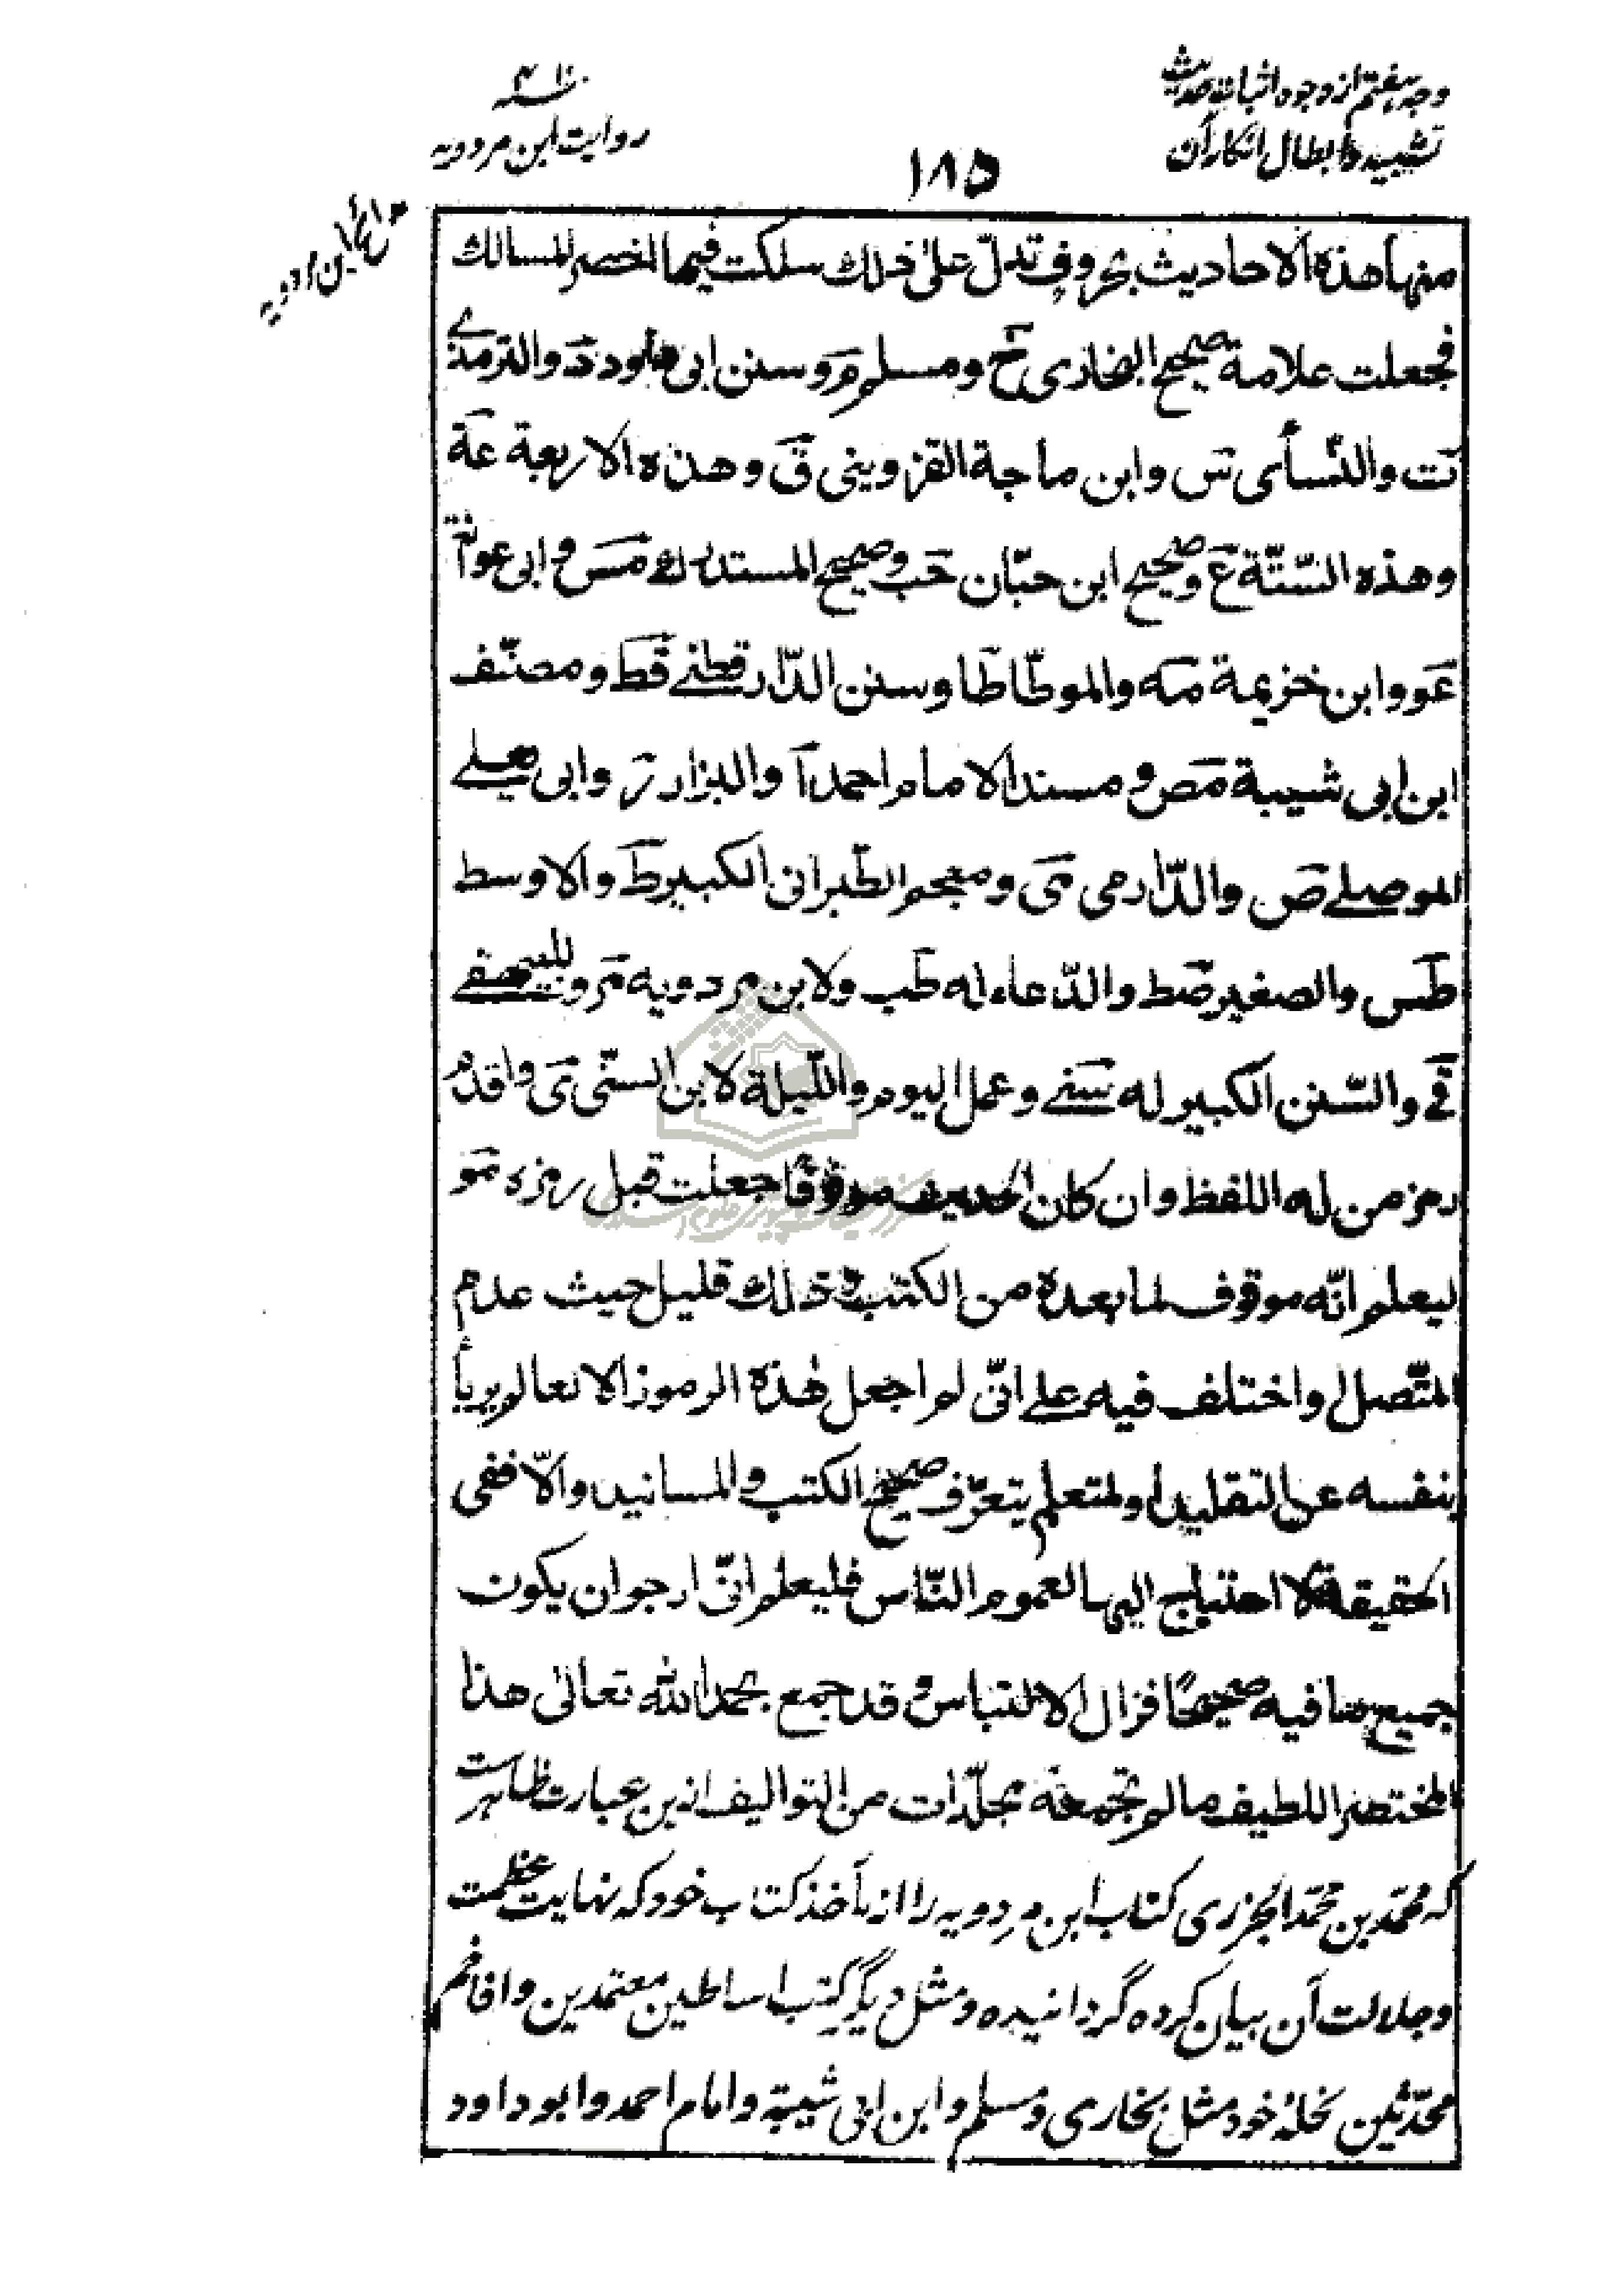 وجه هفتم از وجوه اثبات حدیث
تشبیه و ابطال انکار آن
۱۸۵
روایت ابن مردویه
منها هذه الاحادیث بحروف تدلّ علی ذلك سلکت فیها اخصر المسالك
فجعلت علامة صحیح البخاری خ ومسلم م وسنن ابی داود د والترمذی
ت والنّسأی س وابن ماجة القزوینی ق وهذه الاربعة عة
وهذه السّتّة ع وصحیح ابن حبّان حب وصحیح المستدرك مس وابی عوانة
عو وابن خزیمة مه والموطّا طا وسنن الدّارقطنی قط ومصنّف
ابن ابی شیبة مص ومسند الامام احمد آ والبزار ر وابی یعلی
الموصلی ص والدّارمی می ومعجم الطّبرانی الکبیر ط والاوسط
طس والصغیر صط والدّعاء له طب ولابن مردویه مر وللبیهقی
قی والسّنن الکبیر له سنی وعمل الیوم واللّیلة لابن السنّی ی واقدّم
رمز من له اللفظ وان کان الحدیث موقوفًا جعلت قبل رمزه مو
لیعلم انّه موقوف لما بعده من الکتب وذلك قلیل حیث عدم
المتّصل او اختلف فیه علی انّی لم اجعل هذه الرموز الا لعالم یربأ
بنفسه عن التقلید او لمتعلم یتعرّف صحیح الکتب والمسانید والّا ففی
الحقیقة لا احتیاج الیها لعموم النّاس فلیعلم انّی ارجو ان یکون
جمیع ما فیه صحیحًا فزال الالتباس وقد جمع بحمد الله تعالیٰ هذا
المختصر اللطیف مالم تجمعه مجلّدات من التوالیف ازین عبارت ظاهرست
که محمّد بن محمّد الجزری کتاب ابن مردویه را از مآخذ کتاب خود که نهایت عظمت
وجلالت آن بیان کرده گردانیده ومثل دیگر کتب اساطین معتمدین وافاخم
محدّثین نحلهٔ خود مثل بخاری ومسلم وابن ابی شیبة وامام احمد وابو داود